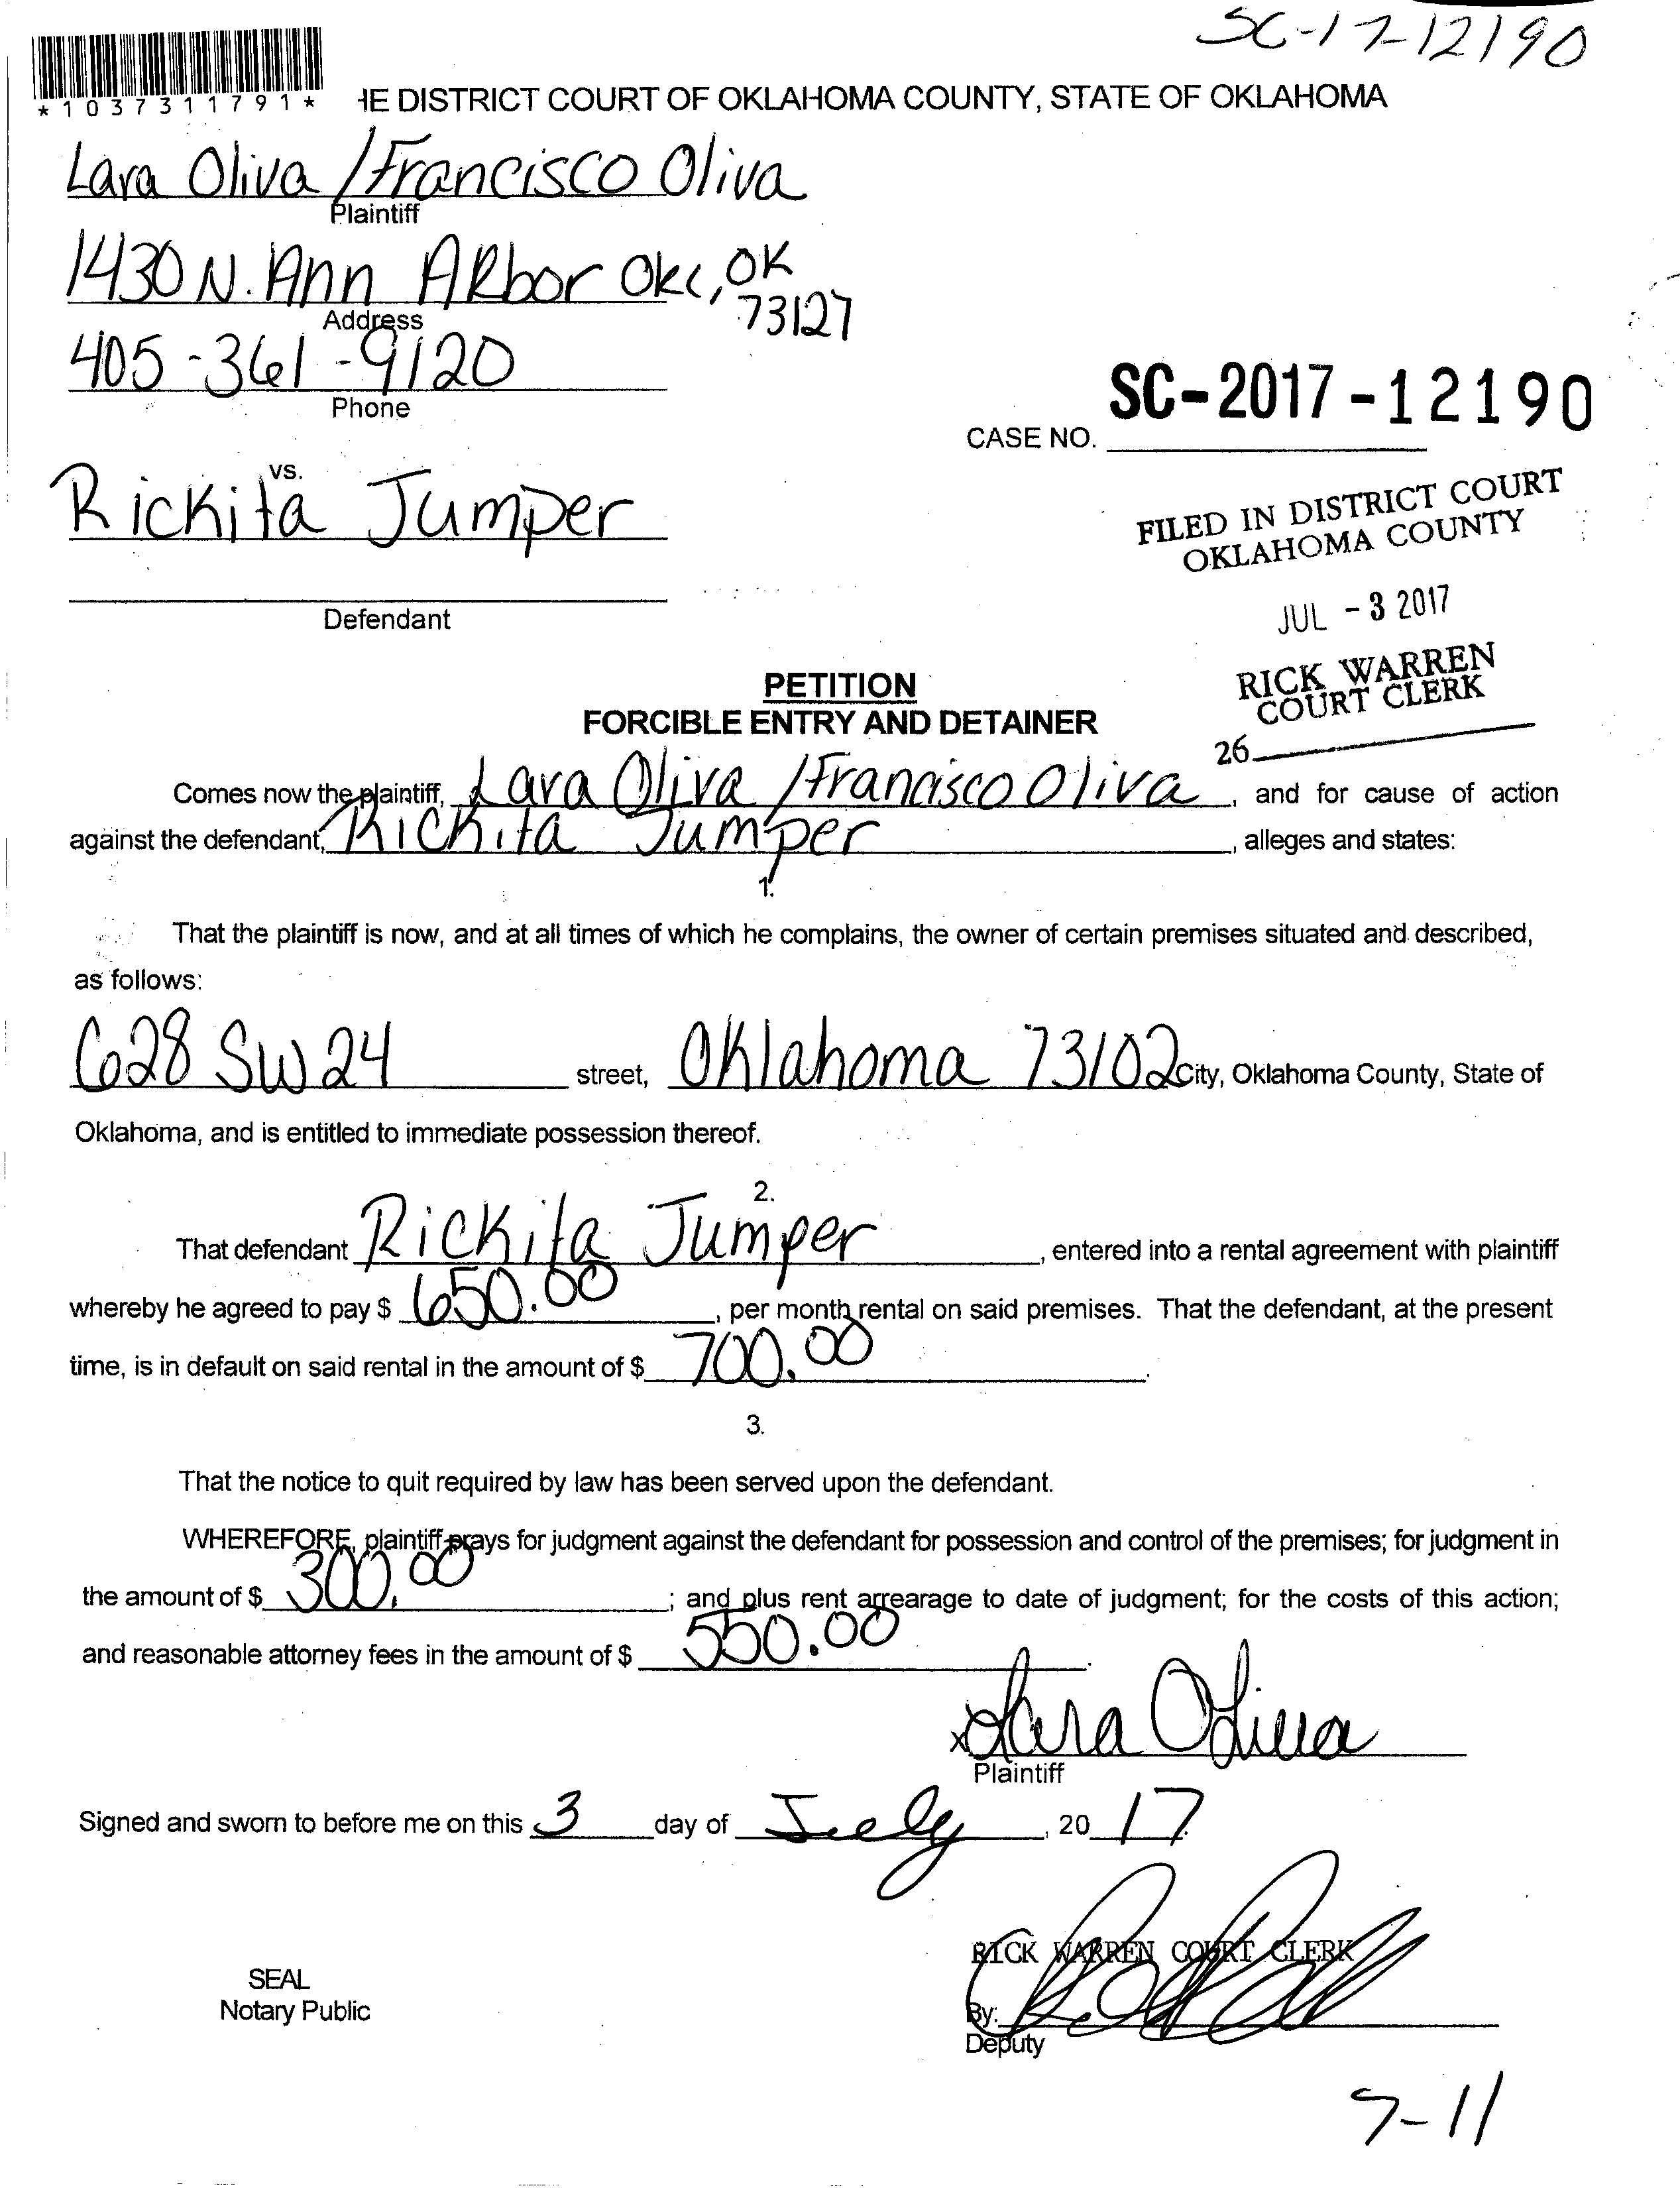 SC-17-12190
*1037311791*
HE DISTRICT COURT OF OKLAHOMA COUNTY, STATE OF OKLAHOMA
Lara Oliva / Francisco Oliva
Plaintiff
1430 N. Ann ARbor Okc, OK
73127
Address
405-361-9120
Phone
SC-2017-12190
CASE NO.
vs.
Rickita Jumper
Defendant
FILED IN DISTRICT COURT
OKLAHOMA COUNTY
JUL - 3 2017
RICK WARREN
COURT CLERK
26
PETITION
FORCIBLE ENTRY AND DETAINER
Comes now the plaintiff, Lara Oliva / Francisco Oliva, and for cause of action
against the defendant, Rickita Jumper, alleges and states:
1.
That the plaintiff is now, and at all times of which he complains, the owner of certain premises situated and described,
as follows:
628 SW 24 street, Oklahoma 73102 City, Oklahoma County, State of
Oklahoma, and is entitled to immediate possession thereof.
2.
That defendant Rickita Jumper, entered into a rental agreement with plaintiff
whereby he agreed to pay $ 650.00, per month rental on said premises. That the defendant, at the present
time, is in default on said rental in the amount of $ 700.00.
3.
That the notice to quit required by law has been served upon the defendant.
WHEREFORE, plaintiff prays for judgment against the defendant for possession and control of the premises; for judgment in
the amount of $ 300.00; and plus rent arrearage to date of judgment; for the costs of this action;
and reasonable attorney fees in the amount of $ 550.00.
x Lara Oliva
Plaintiff
Signed and sworn to before me on this 3 day of July, 20 17.
RICK WARREN COURT CLERK
SEAL
Notary Public
By:
Deputy
7-11